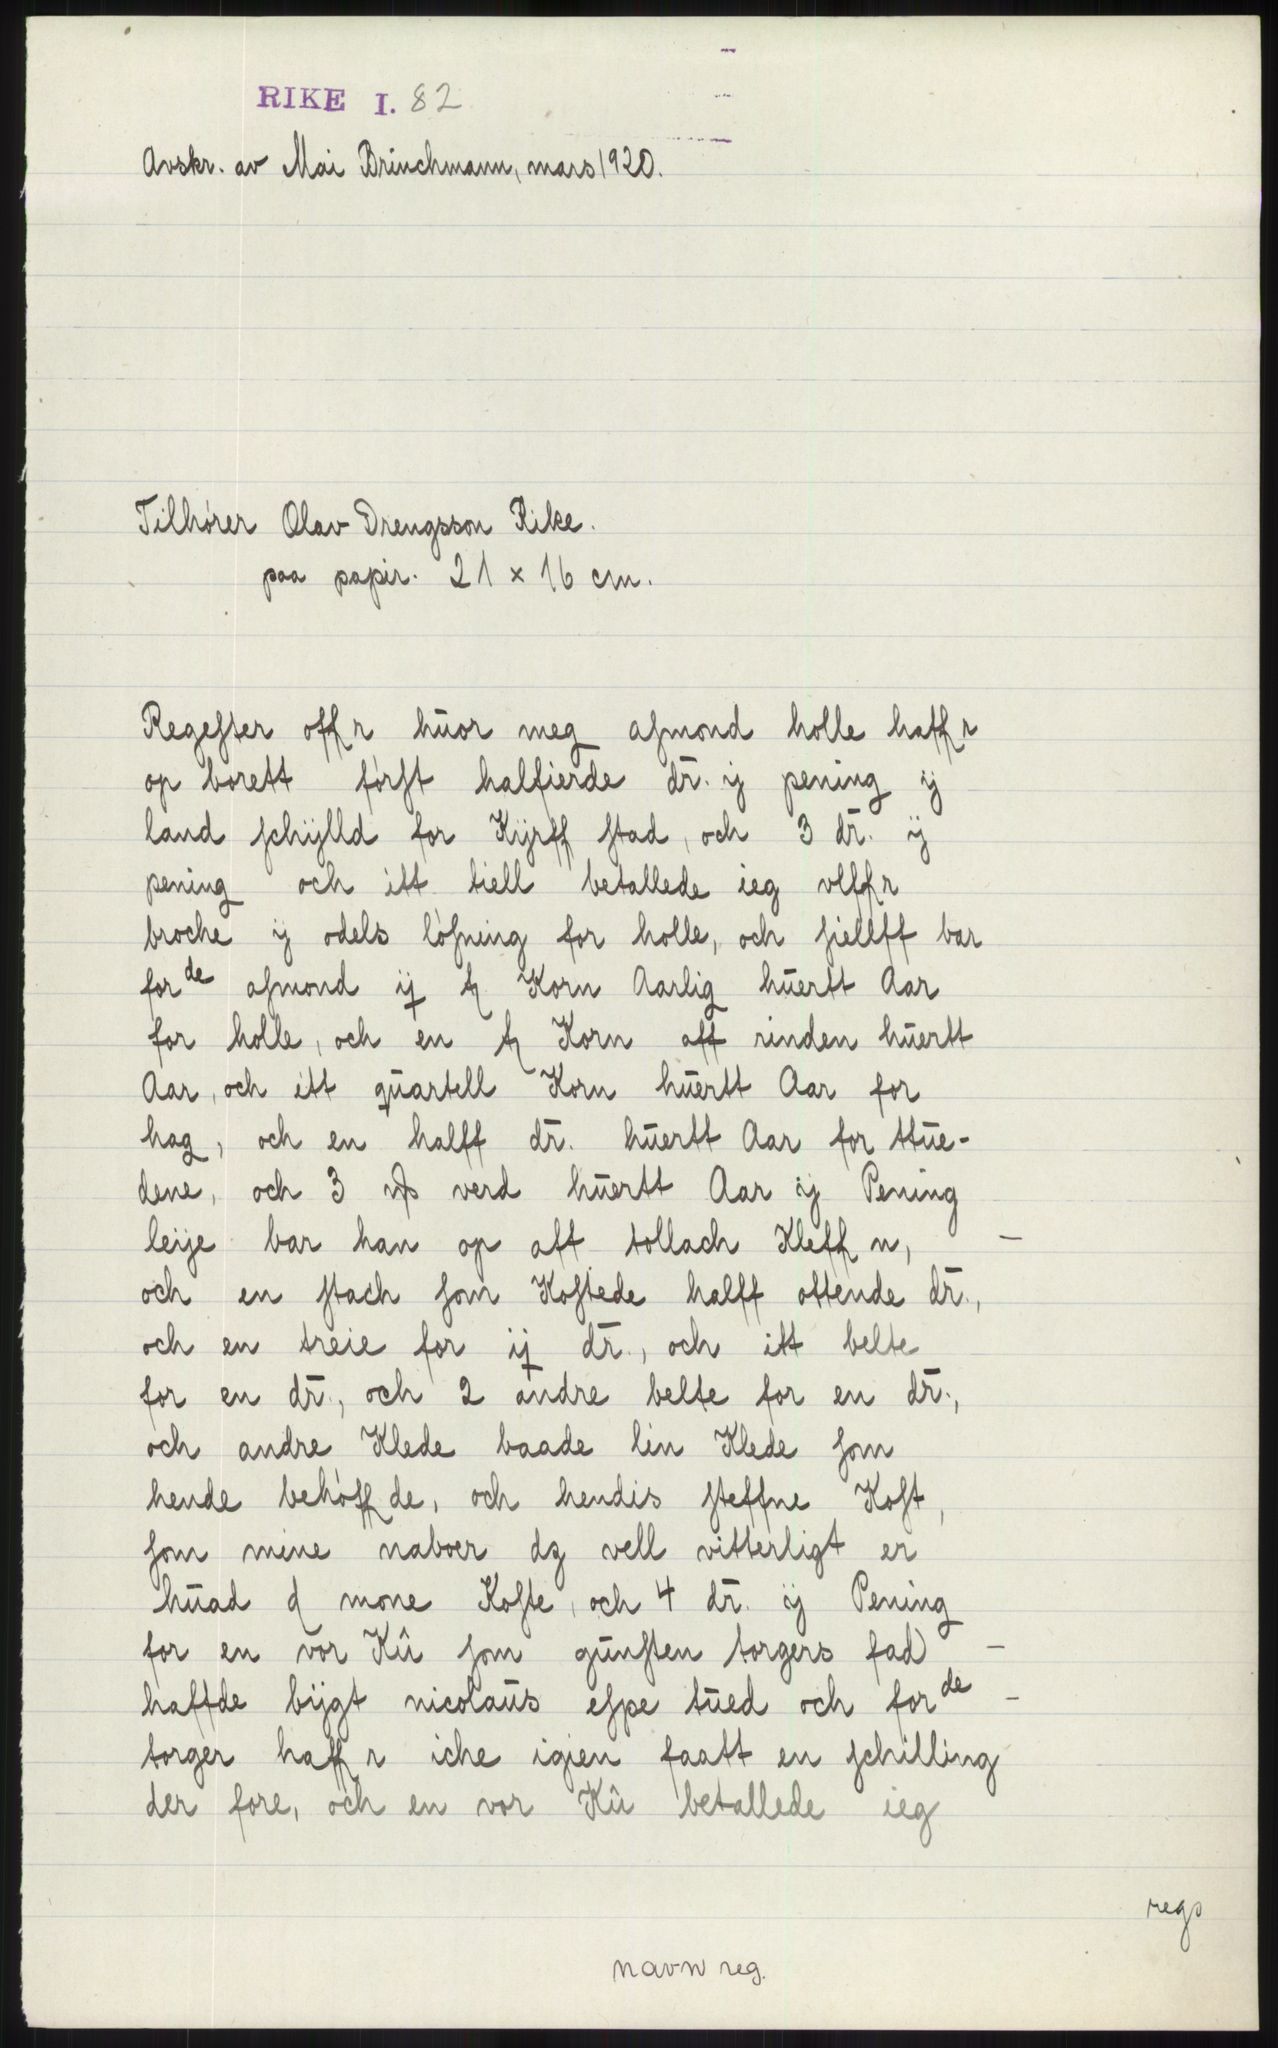 RIKE I. 82
Avskr. av Mai Brinchmann, mars 1920.
Tilhörer Olav Drengsson Rike.
paa papir. 21 x 16 cm.
Regeſter off r huor meg aſmond holle haff r
op borett förſt halfierde dr. ij pening ij
land ſchÿlld for Kÿrff ſtad, och 3 dr. ij
pening och itt tiell betallede ieg vlff r
broche ij odels löſning for holle, och ſiellff bar
for de aſmond ij Korn Aarlig huertt Aar
for holle, och en Korn aff rinden huertt
Aar, och itt quartell Korn huertt Aar for
hag, och en halff dr. huertt Aar for ttue-
dene, och 3 verd huertt Aar ij Pening
leije bar han op aff tollach Kleff n, —
och en ſtach ſom Koſtede halff ottende dr.,
och en treie for ij dr., och itt belte
for en dr., och 2 andre belte for en dr.,
och andre Klede baade lin Klede ſom
hende behöff de, och hendis ſteffne Koſt,
ſom mine naboer dz vell vitterligt er
huad d mone Koſte, och 4 dr. ij Pening
for en vor Kû ſom gunſten torgers fad —
haffde bÿgt nicolaus eſpe tued och for de —
torger haff r iche igien faatt en ſchilling
der fore, och en vor Kû betallede ieg
regs
navn reg.